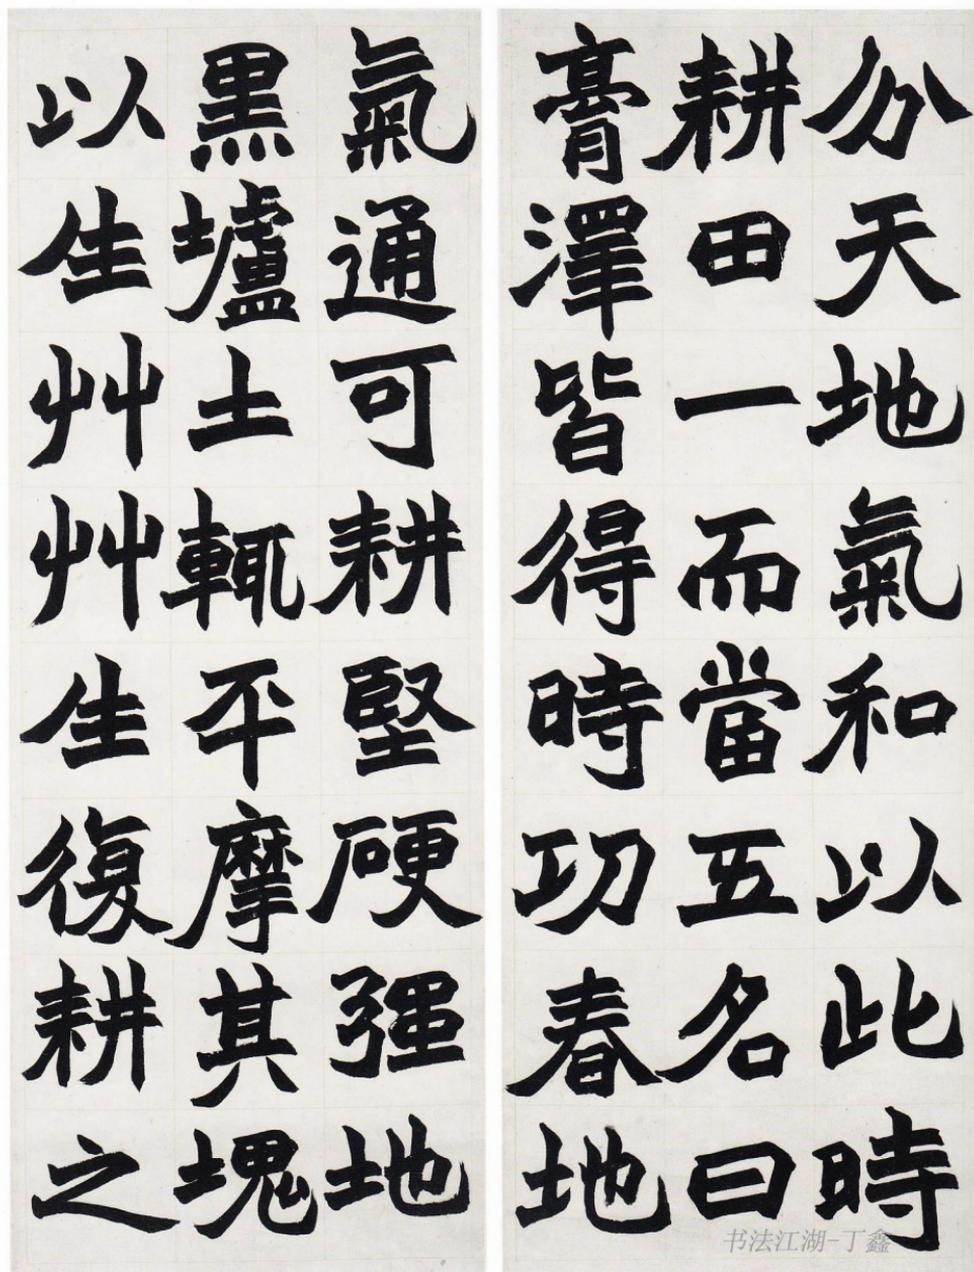 分天地氣和以此時
耕田一而當五名曰
膏澤皆得時功春地
氣通可耕堅硬强地
黑壚土輒平摩其塊
以生艸艸生復耕之
书法江湖-丁鑫